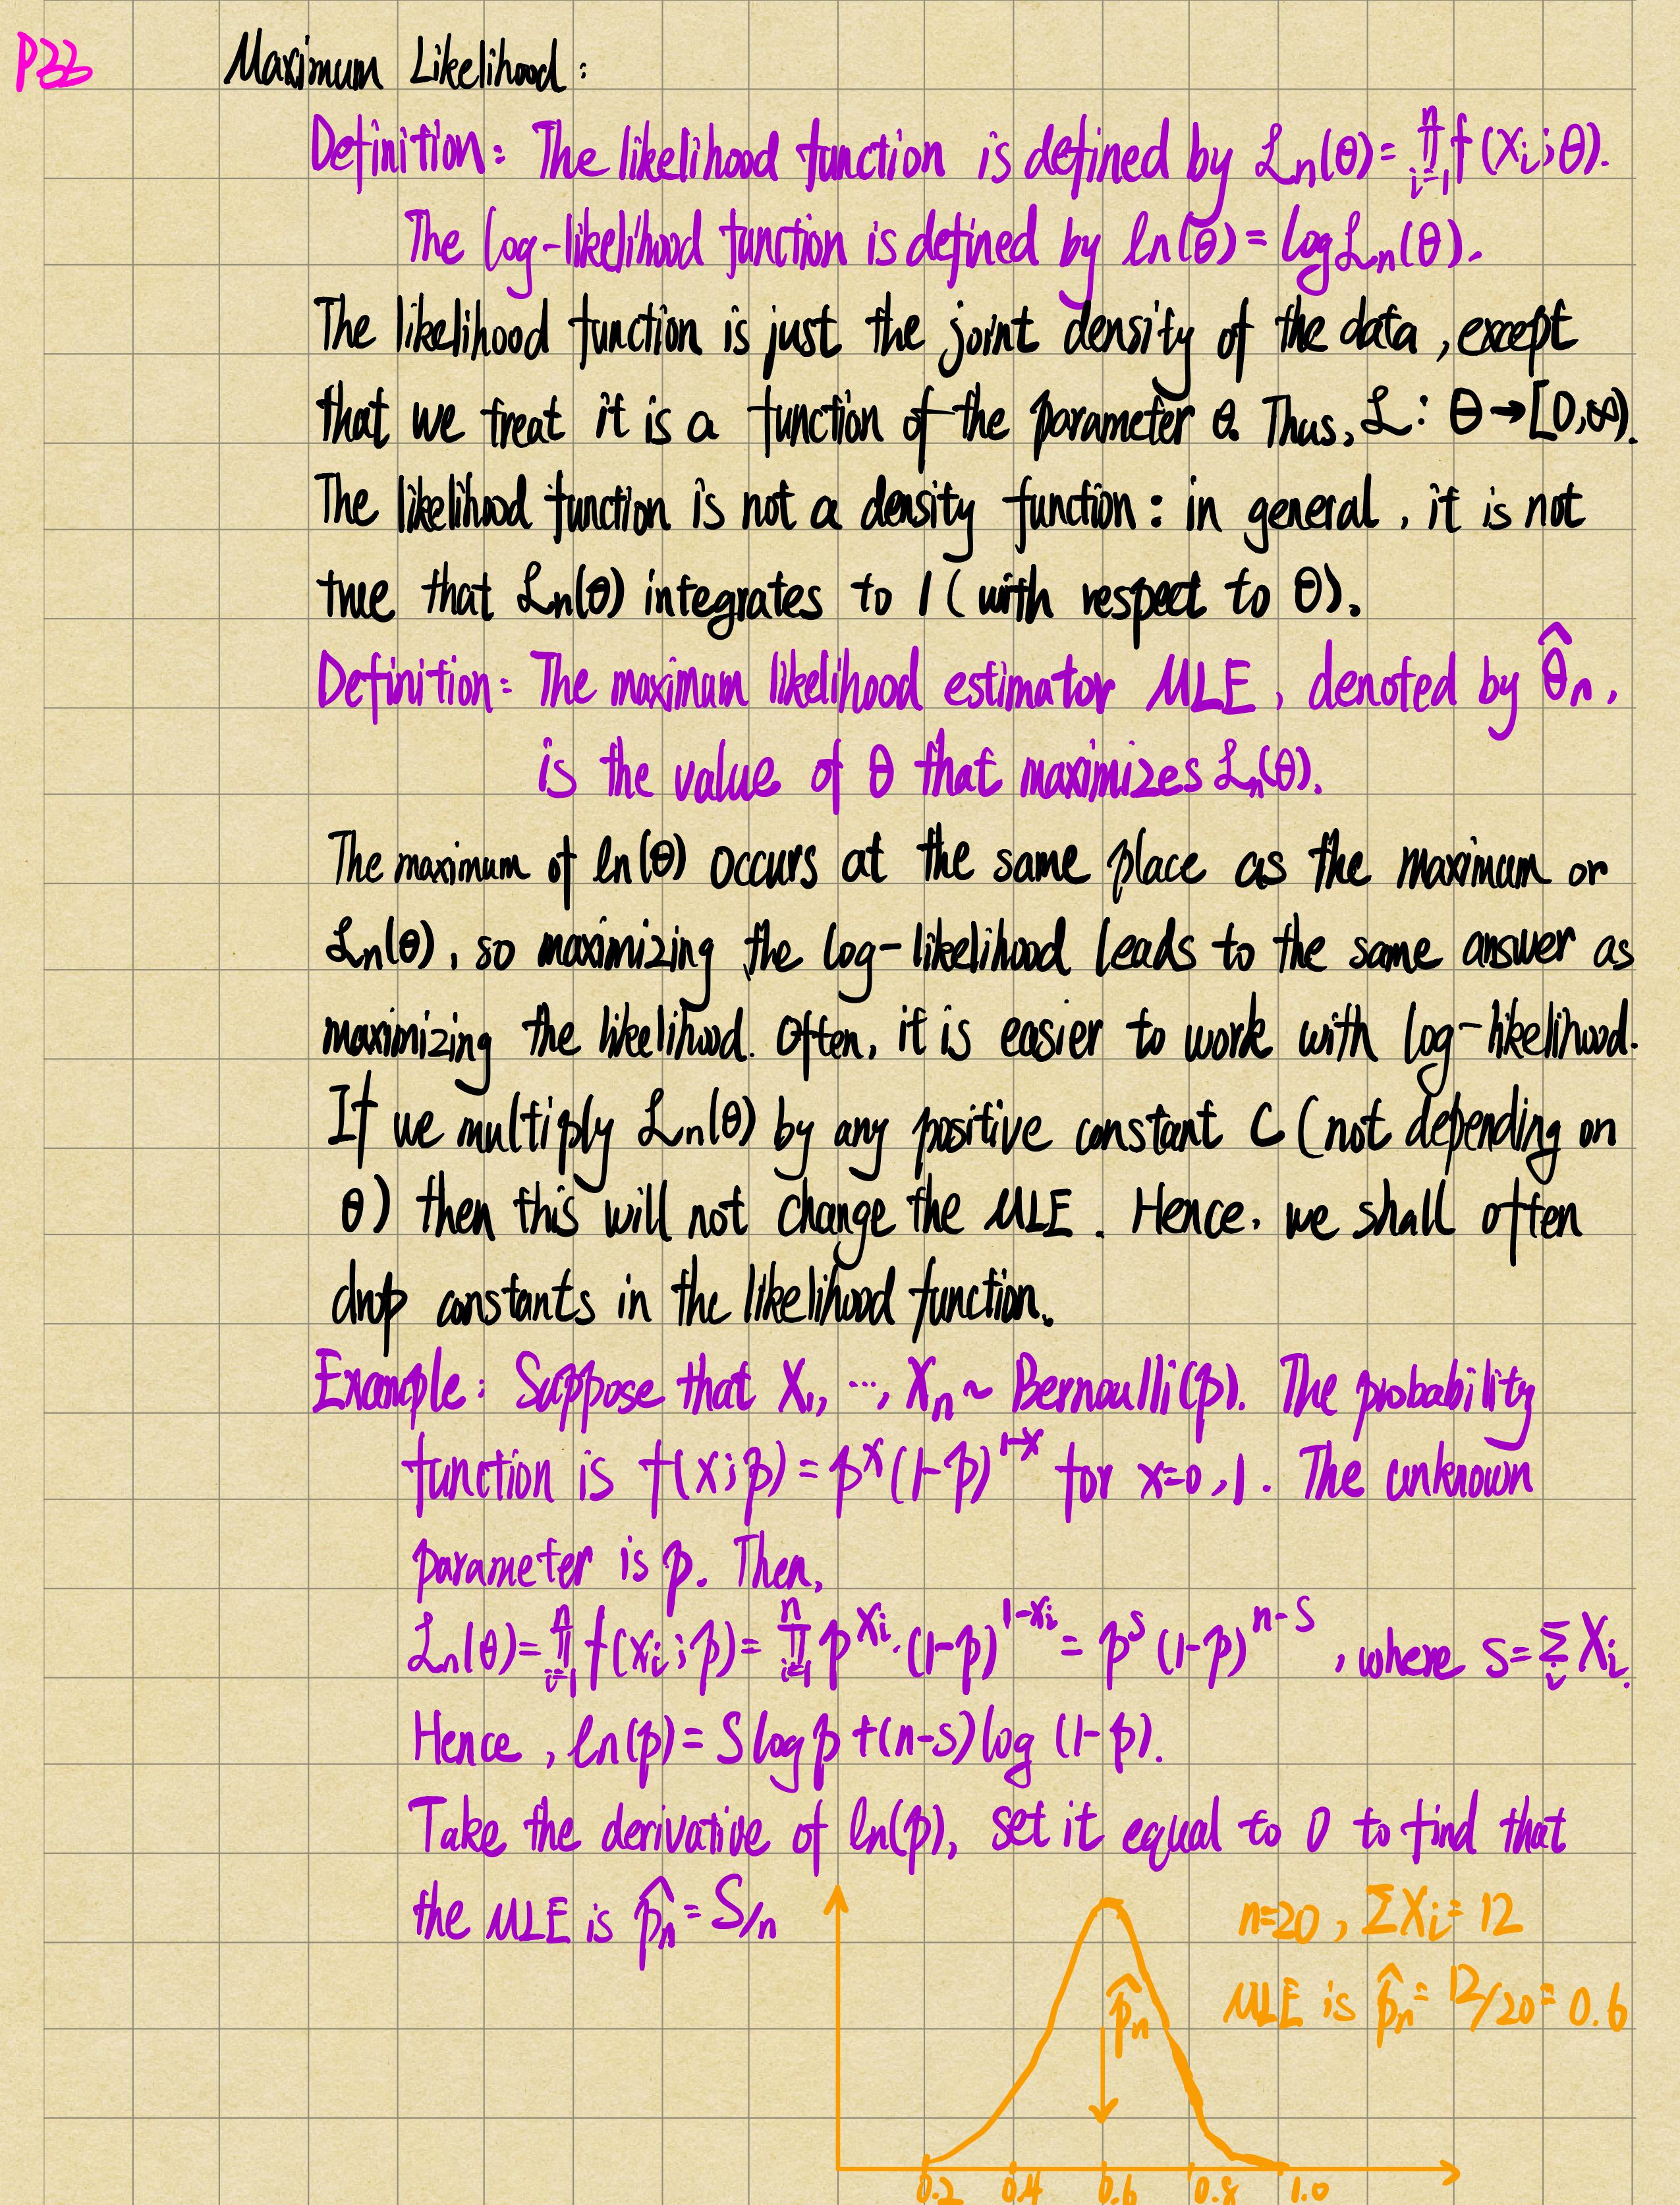 P22
Maximum Likelihood:
Definition: The likelihood function is defined by ℒn(θ)=∏ⁿᵢ₌₁ f(Xi;θ).
The log-likelihood function is defined by ln(θ)=logℒn(θ).
The likelihood function is just the joint density of the data, except
that we treat it is a function of the parameter θ. Thus, ℒ: Θ→[0,∞).
The likelihood function is not a density function: in general, it is not
true that ℒn(θ) integrates to 1 (with respect to θ).
Definition: The maximum likelihood estimator MLE, denoted by θ̂n,
is the value of θ that maximizes ℒn(θ).
The maximum of ln(θ) occurs at the same place as the maximum or
ℒn(θ), so maximizing the log-likelihood leads to the same answer as
maximizing the likelihood. Often, it is easier to work with log-likelihood.
If we multiply ℒn(θ) by any positive constant C (not depending on
θ) then this will not change the MLE. Hence, we shall often
drop constants in the likelihood function.
Example: Suppose that X₁, ..., Xn ~ Bernoulli(p). The probability
function is f(x;p)=pˣ(1-p)¹⁻ˣ for x=0,1. The unknown
parameter is p. Then,
ℒn(θ)=∏ⁿᵢ₌₁ f(Xi;p)=∏ⁿᵢ₌₁ p^Xi·(1-p)^1-Xi = p^S (1-p)^n-S, where S=Σᵢ Xi.
Hence, ln(p)=S log p+(n-S)log (1-p).
Take the derivative of ln(p), set it equal to 0 to find that
the MLE is p̂n=S/n
n=20, ΣXi=12
MLE is p̂n=12/20=0.6
p̂n
0.2 0.4 0.6 0.8 1.0